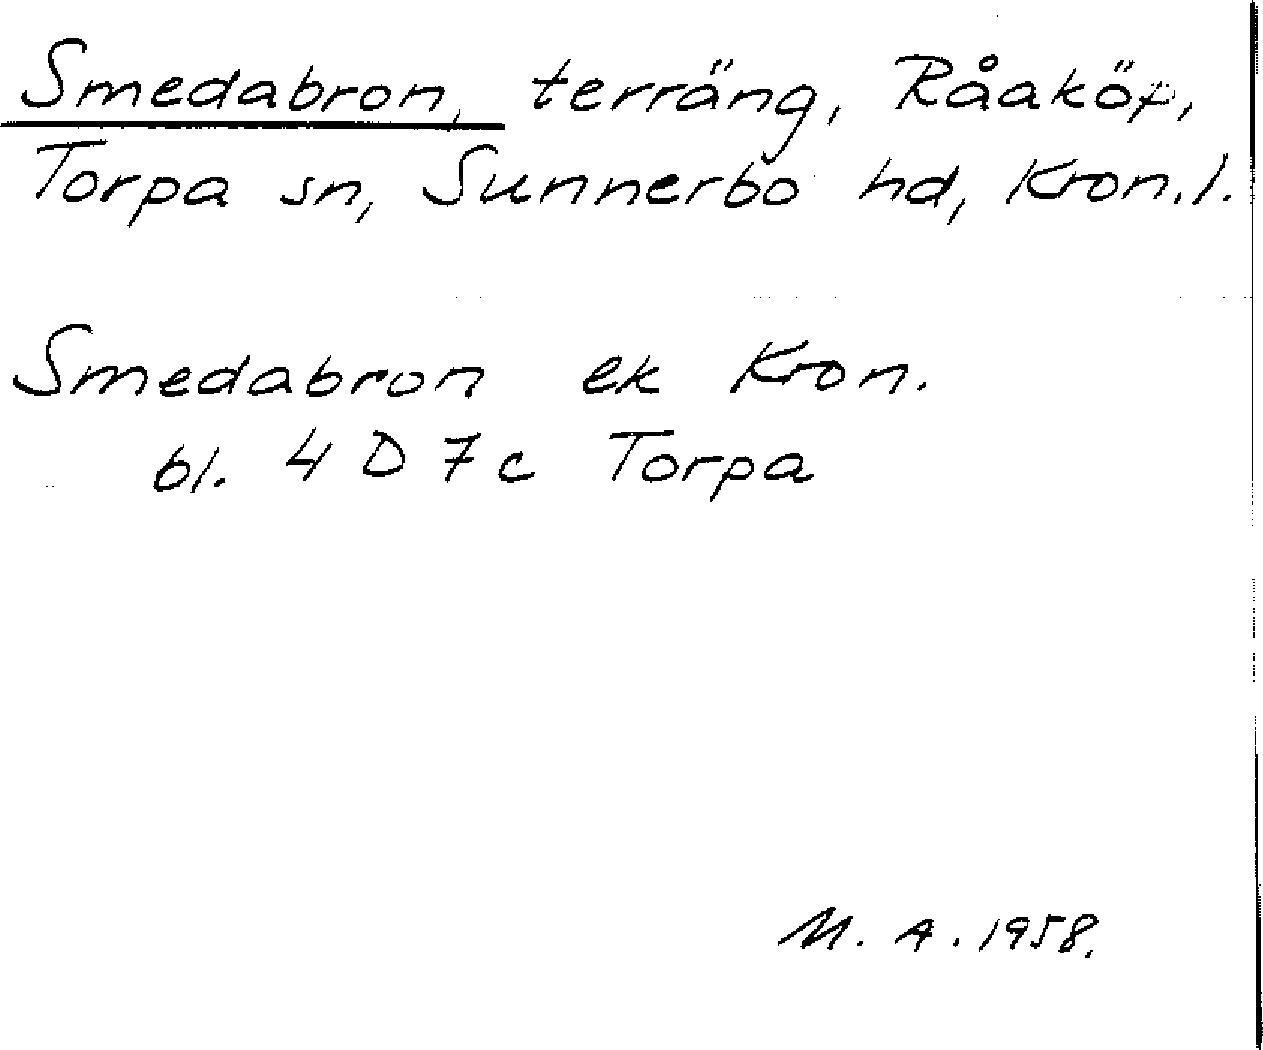 Smedabron, terräng, Råaköp,
Torpa sn, Sunnerbo hd, Kron.l.
Smedabron ek Kron.
bl. 4 D 7 c Torpa
M. A. 1958.